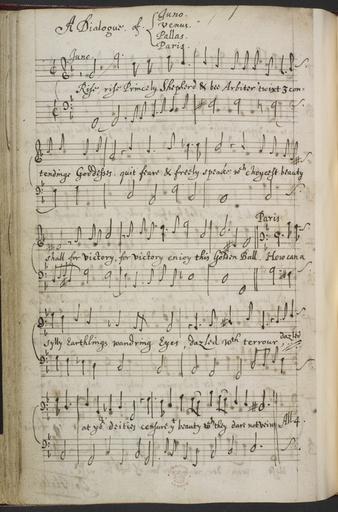 A Dialogue of
Juno.
Venus.
Pallas.
Paris.
Juno
Rise, rise Princely Shepherd & bee Arbiter twixt 3 con-
tendinge Goddesses, quit feare & freely speake wch choycest beauty
Paris
shall for victory, for victory enioy this Golden Ball. How can a
sylly Earthlings wandring Eyes, dazled wth terrour, dazled
at ye deities censure ye beauty they dare not veiw, All 4.